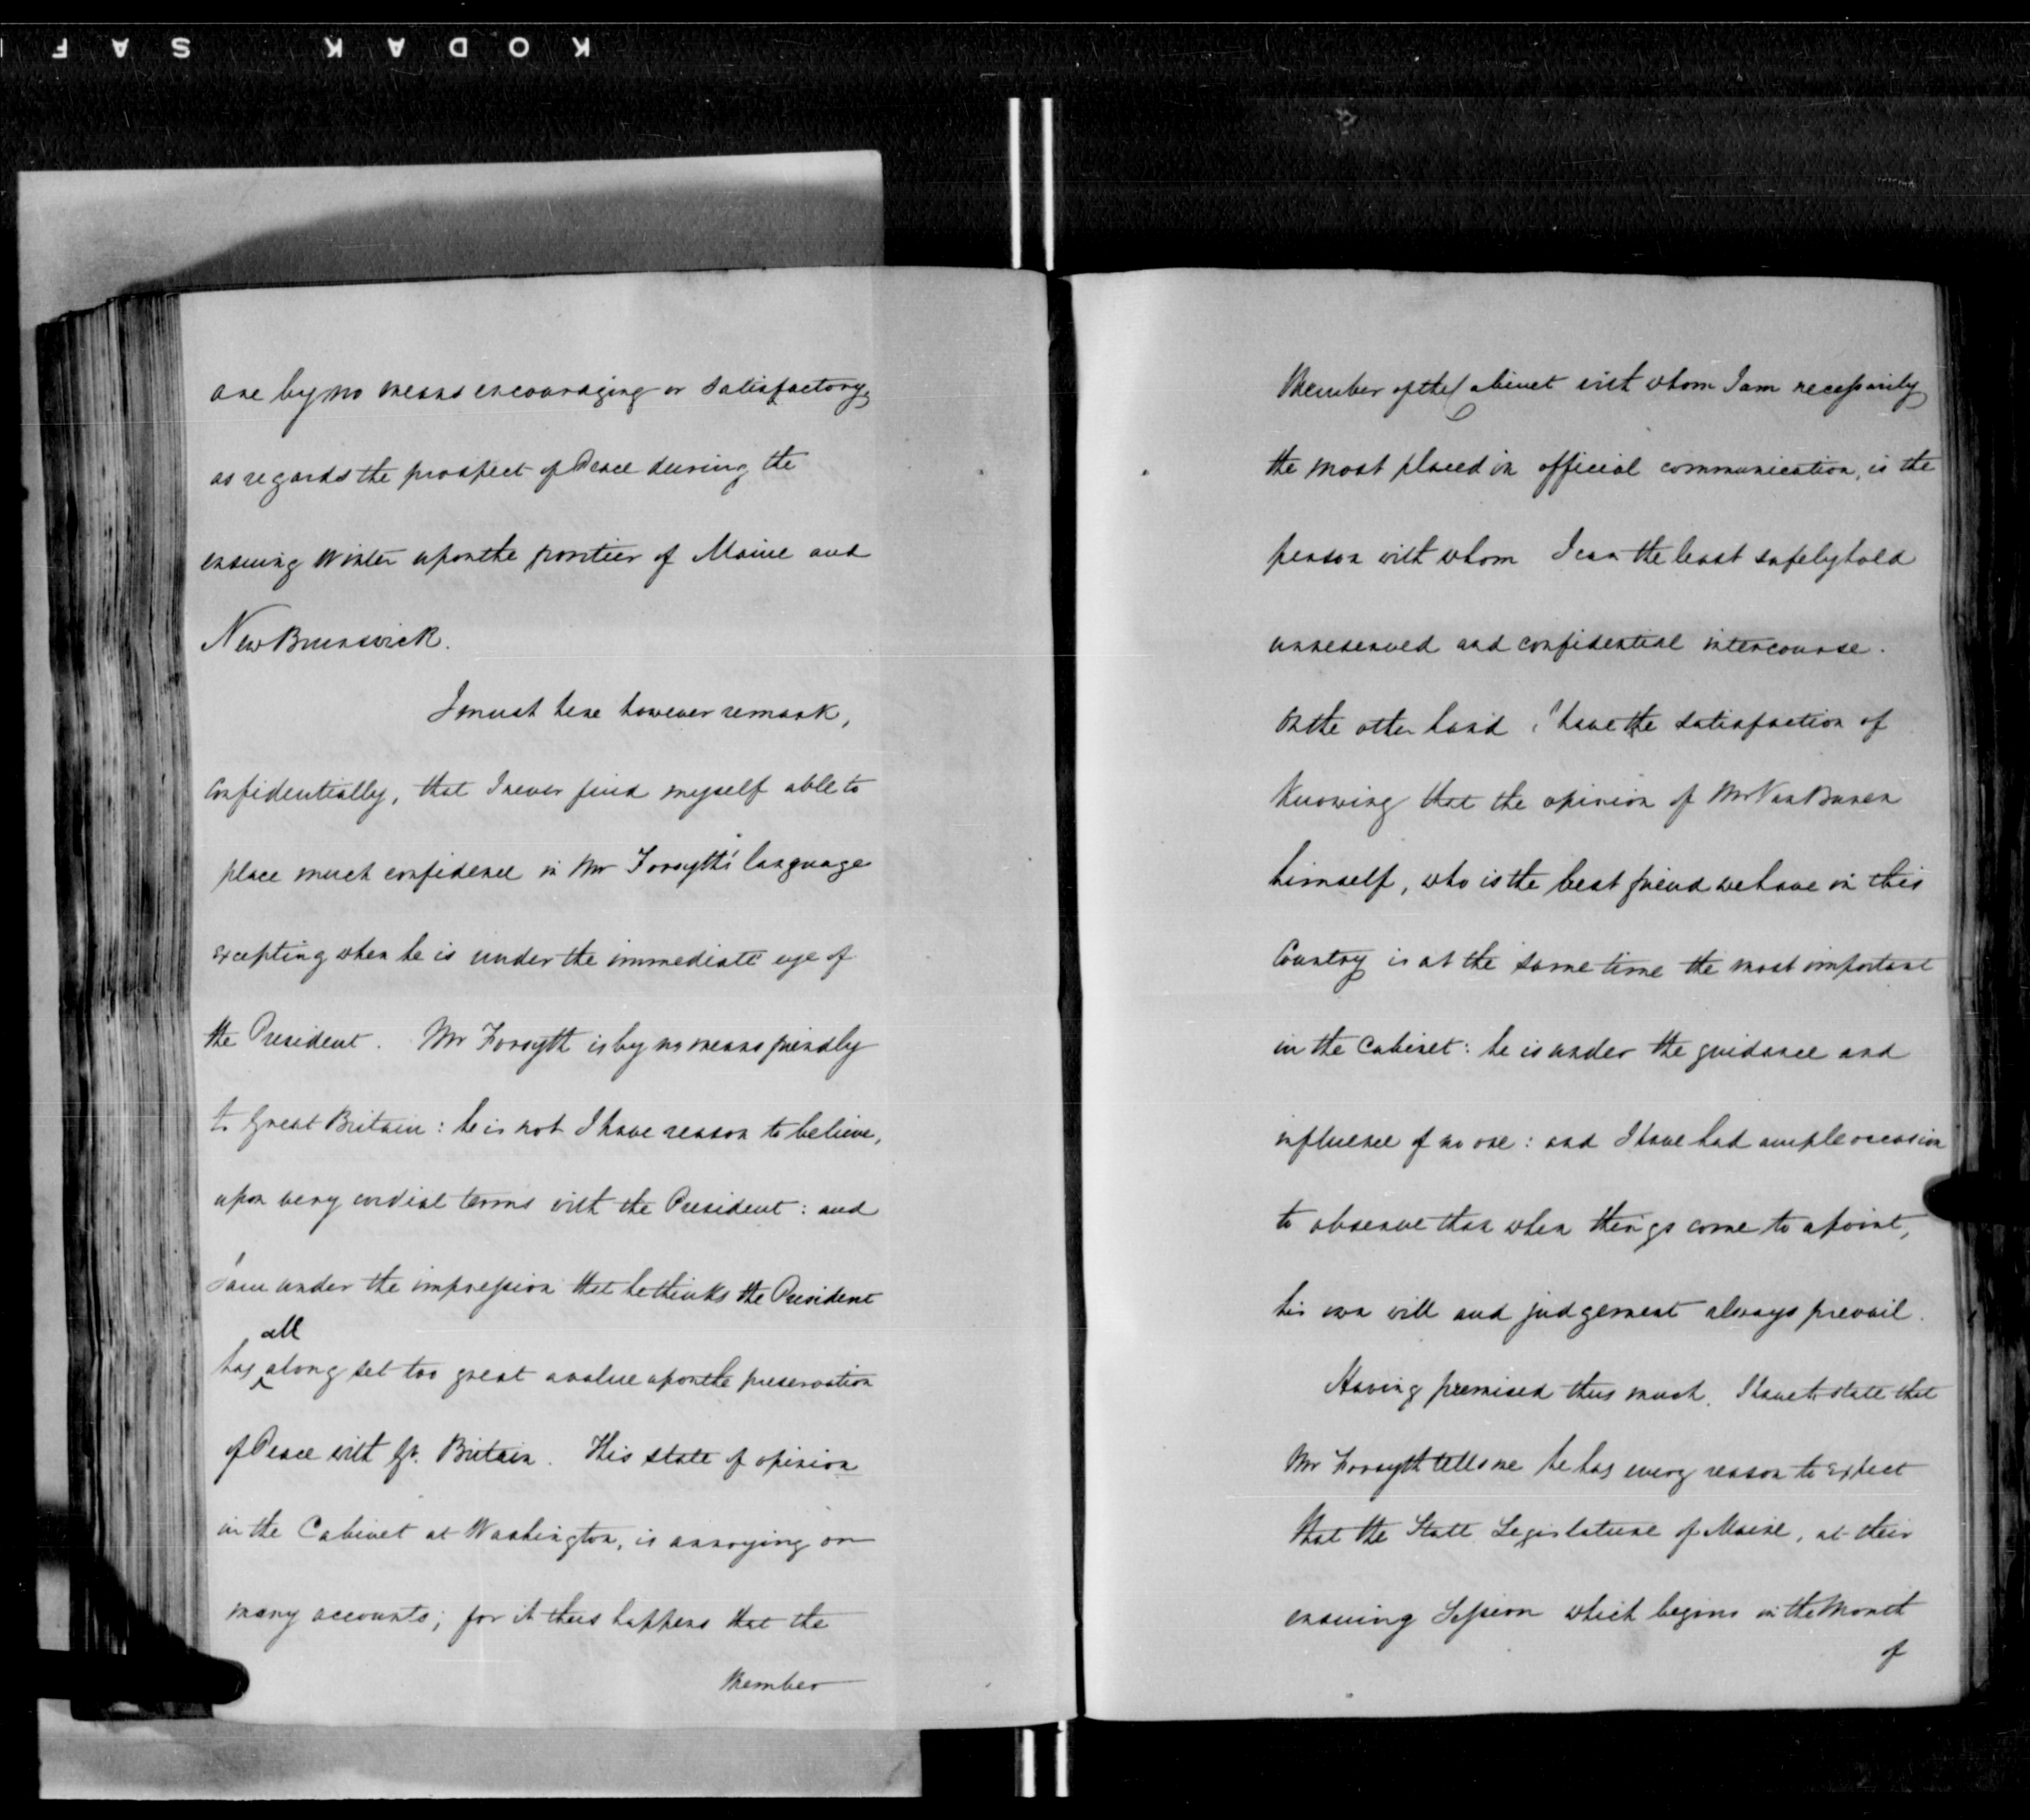 KODAK SAF
are by no means encouraging or satisfactory,
as regards the prospect of Peace during the
ensuing Winter upon the frontier of Maine and
New Brunswick.
I must here however remark,
Confidentially, that I never find myself able to
place much confidence in Mr Forsyth's language
excepting when he is under the immediate eye of
the President. Mr Forsyth is by no means friendly
to Great Britain: he is not I have reason to believe,
upon very cordial terms with the President: and
I am under the impression that he thinks the President
has all along set too great a value upon the preservation
of Peace with Gt. Britain. This state of opinion
in the Cabinet at Washington, is annoying on
many accounts; for it thus happens that the
Member
Member of the Cabinet with whom I am necessarily
the most placed in official communication, is the
person with whom I can the least safely hold
unreserved and confidential intercourse.
On the other hand I have the satisfaction of
Knowing that the opinion of Mr Van Buren
himself, who is the best friend we have in this
Country is at the same time the most important
in the Cabinet: he is under the guidance and
influence of no one: and I have had ample occasion
to observe that when things come to a point,
his own will and judgement always prevail.
Having premised thus much, I have to state that
Mr Forsyth tells me he has every reason to expect
that the State Legislature of Maine, at their
ensuing Session which begins in the Month
of